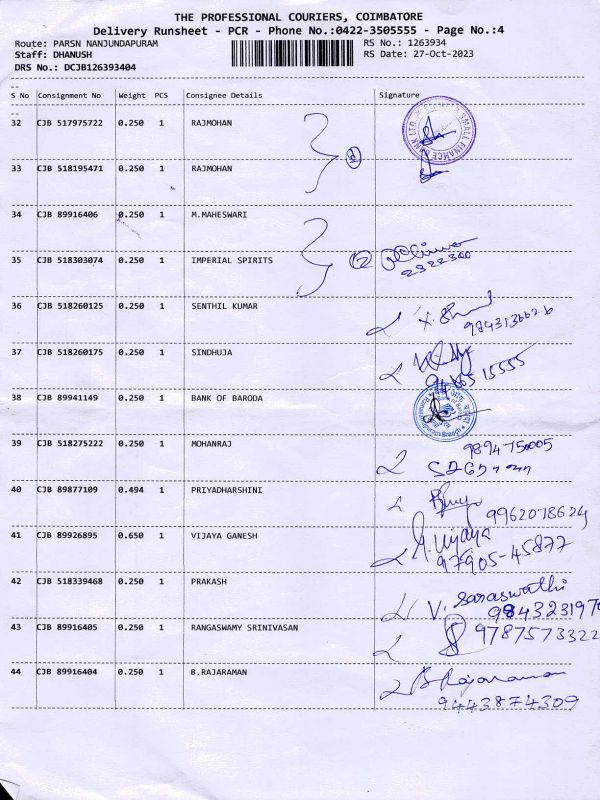 THE PROFESSIONAL COURIERS, COIMBATORE
Delivery Runsheet - PCR - Phone No.:0422-3505555 - Page No.:4
Route: PARSN NANJUNDAPURAM
RS No.: 1263934
Staff: DHANUSH
RS Date: 27-Oct-2023
DRS No.: DCJB126393404
--
S No Consignment No Weight PCS Consignee Details Signature
--
32 CJB 517975722 0.250 1 RAJMOHAN
SMALL FINANCE
33 CJB 518195471 0.250 1 RAJMOHAN
34 CJB 89916406 0.250 1 M.MAHESWARI
35 CJB 518303074 0.250 1 IMPERIAL SPIRITS
2322300
36 CJB 518260125 0.250 1 SENTHIL KUMAR
37 CJB 518260175 0.250 1 SINDHUJA
38 CJB 89941149 0.250 1 BANK OF BARODA
39 CJB 518275222 0.250 1 MOHANRAJ
40 CJB 89877109 0.494 1 PRIYADHARSHINI
9962018624
41 CJB 89926895 0.650 1 VIJAYA GANESH
G. Vijaya
97905-45877
42 CJB 518339468 0.250 1 PRAKASH
V. Saraswathi
984323197
43 CJB 89916405 0.250 1 RANGASWAMY SRINIVASAN
9787573322
44 CJB 89916404 0.250 1 B.RAJARAMAN
B Rajaraman
9443874309